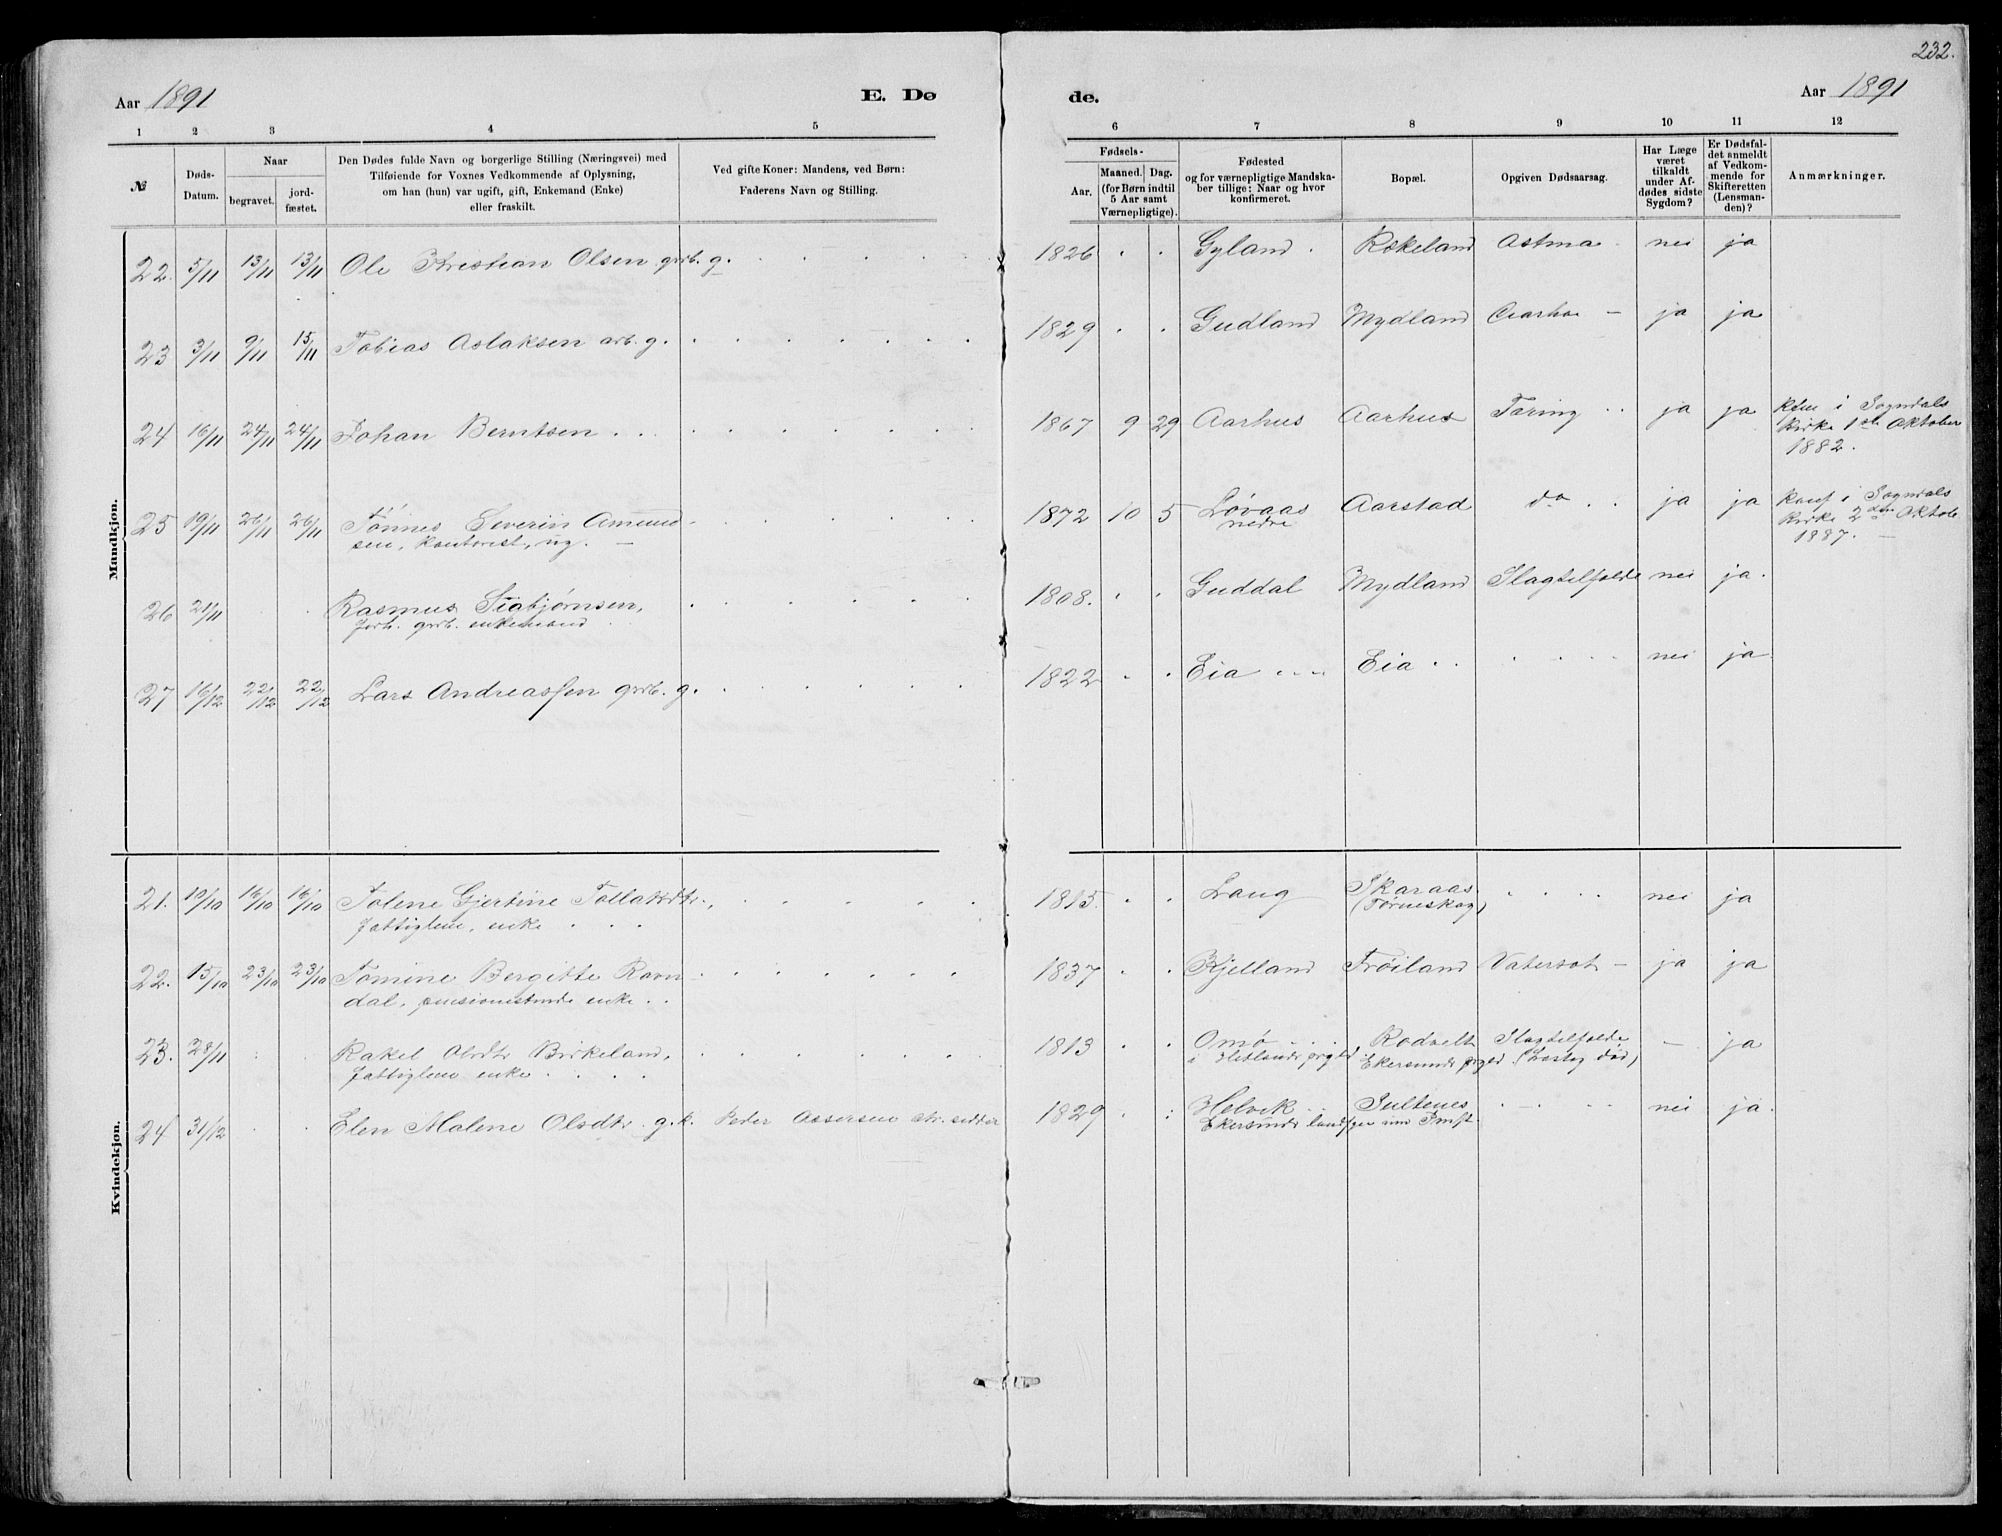 232.
Aar 1891
E. Dø
de.
Aar 1891
1 2 3 4 5 6 7 8 9 10 11 12
№
Døds-Datum.
Naar
begravet.
jord-fæstet.
Den Dødes fulde Navn og borgerlige Stilling (Næringsvei) med
Tilføiende for Voxnes Vedkommende af Oplysning,
om han (hun) var ugift, gift, Enkemand (Enke)
eller fraskilt.
Ved gifte Koner: Mandens, ved Børn:
Faderens Navn og Stilling.
Fødsels-
Aar.
Maaned. Dag.
(for Børn indtil
5 Aar samt
Værnepligtige).
Fødested
og for værnepligtige Mandska-
ber tillige: Naar og hvor
konfirmeret.
Bopæl.
Opgiven Dødsaarsag.
Har Læge
været
tilkaldt
under Af-
dødes sidste
Sygdom?
Er Dødsfal-
det anmeldt
af Vedkom-
mende for
Skifteretten
(Lensman-
den)?
Anmærkninger.
Mandkjøn.
22. 5/11 13/11 13/11 Ole Kristian Olsen grb. g. 1826 Gyland Rokeland Astma nei ja
23 3/11 9/11 15/11 Tobias Aslaksen arb. g. 1829 Gudland Mydland ja ja
24 16/11 24/11 24/11 Johan Berntsen 1867 9 29 Aarhus Aarhus Tæring ja ja
i Sogndals
Kirke 1ste Oktober
1882.
25 19/11 26/11 26/11 Tønnes Severin Amund-
sen, kontorist, ug. 1872 10 5 Løvaas
nedre Aarstad do ja ja
Konf i Sogndals
Kirke 2den Oktob
1887.
26 21/11 Rasmus Siabjørnsen,
forh. grb. enkemand 1808. Guddal Mydland Slagtilfælde nei ja.
27 16/12 22/12 22/12 Lars Andreassen grb. g. 1822 Eia Eia nei ja
Kvindekjøn.
21. 10/10 16/10 16/10 Tolene Gjertine Tollaksdtr.,
fattiglem, enke 1815. Laug Skaraas
(Tørneskog) nei ja
22. 15/10 23/10 23/10 Tomine Bergitte Ravn-
dal, pensionistinde enke 1837 Kjelland Frøiland Vatersot ja ja
23. 28/11 Rakel Olsdtr Birkeland,
fattiglem enke 1813 Omø
i Hetlands prgld. Rodvelt
Ekersunds prgld. Slagtilfælde
(Løst død) - ja
24 31/12 Elen Malene Olsdtr g. k. Peder Assersen str. sidder 1829 Helvik
Ekersunds landsogn Sultenes
nei ja.